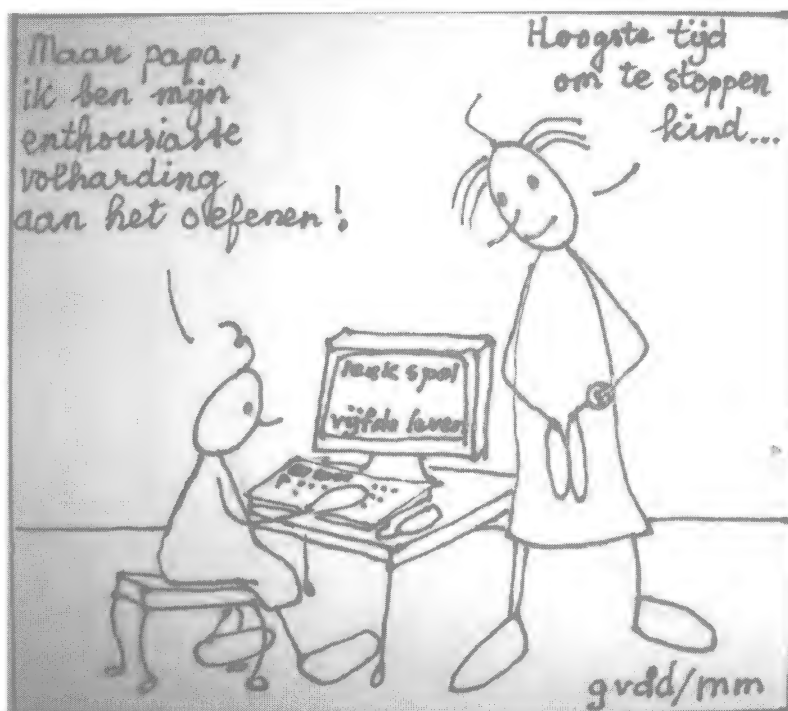 Maar papa,
ik ben mijn
enthousiaste
volharding
aan het oefenen!
Hoogste tijd
om te stoppen
kind...
leuk spel
vijfde leven
gvdd/mm